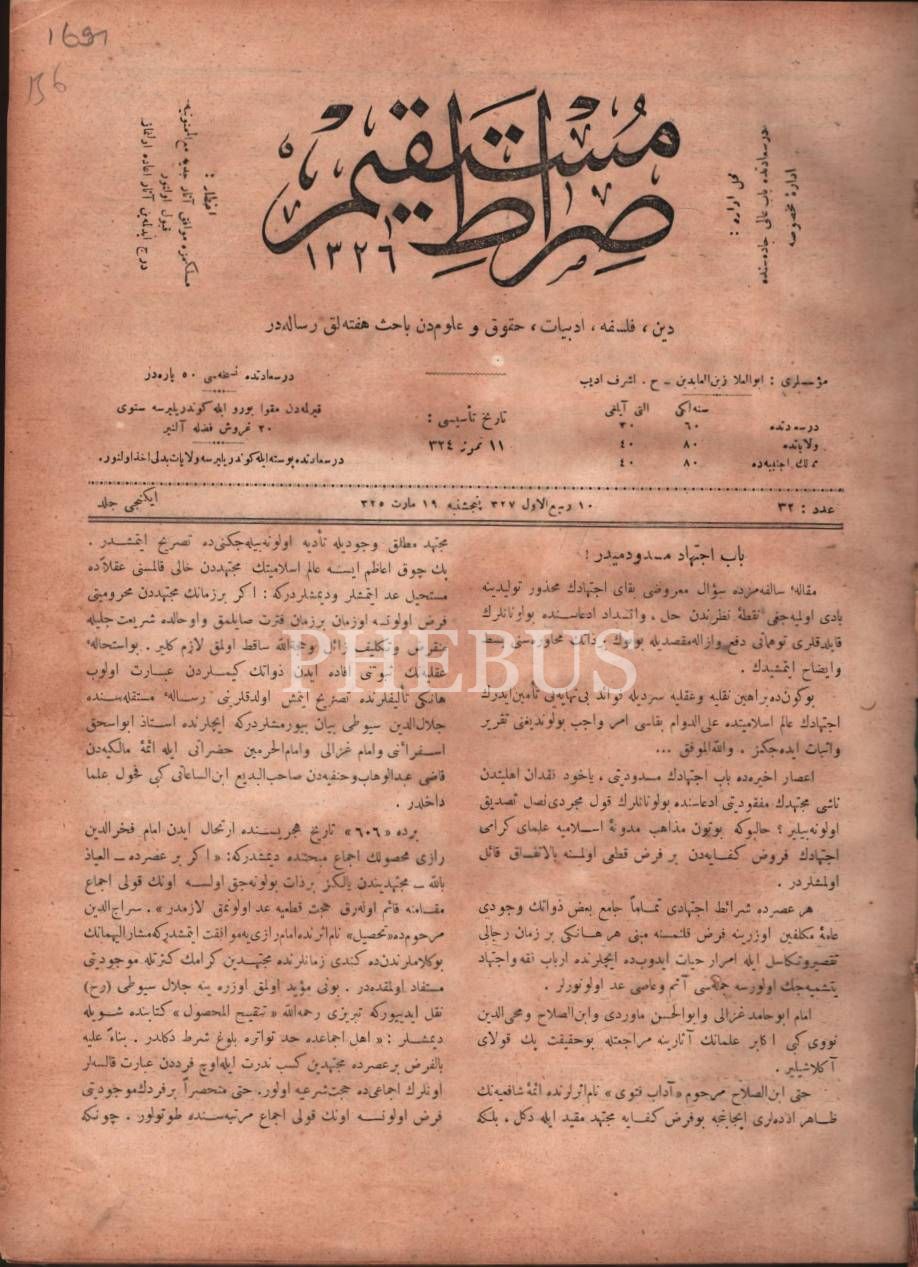 1691
B6
صِراطِ مُسْتَقيمْ
١٣٢٦
محل اداره :
در سعادتده باب عالی جاده‌سنده
ادارهٔ مخصوصه
اخطار :
مسلكمزه موافق آثار جدیه مع الممنونیه
قبول اولنور
درج ایدلمین آثار اعاده اولنماز
دین ، فلسفه ، ادبیات ، حقوق و علوم‌دن باحث هفته‌لق رساله‌در
مؤسسلری : ابوالعلا زین‌العابدین ـ ح . اشرف ادیب
سنه‌لكی     التی آیلغی
درسعادتده     ٦٠     ٣٠
ولایاتده     ٨٠     ٤٠
ممالك اجنبیه‌ده     ٨٠     ٤٠
تاریخ تأسیسی :
١١ تموز ٣٢٤
درسعادتده نسخه‌سی ٥٠ پاره‌در
قیرلمه‌دن مقوا بورو ایله كوندریلیرسه سنوی
٢٠ غروش فضله آلنیر
درسعادتده پوسته ایله كوندریلیرسه ولایات بدلی اخذ اولنور.
عدد : ٣٢     ١٠ ربیع الاول ٣٢٧   پنجشنبه   ١٩ مارت ٣٢٥     ایكنجی جلد
باب اجتهاد مسدودمیدر !
مقالهٔ سالفه‌مزده سؤال معروضی بقای اجتهادك محذور تولیدینه
بادی اولیه‌جغی نقطهٔ نظرندن حل ، وانسداد ادعاسنده بولونانلرك
قاپلدقلری توهماتی دفع وازاله مقصدیله بولوك ذواتك محاوره‌سنی بسط
وایضاح ایتمشیدك .
بوكون‌ده براهین نقلیه وعقلیه سردیله فوائد بی نهایه‌یی تأمین ایدرك
اجتهادك عالم اسلامیتده علی‌الدوام بقاسی امر واجب بولوندیغنی تقریر
واثبات ایده‌جكز . والله‌الموفق ...
اعصار اخیره‌ده باب اجتهادك مسدودیتی ، یاخود نقدان اهلیتدن
ناشی مجتهدك مفقودیتی ادعاسنده بولونانلرك قول مجردی نصل تصدیق
اولونه‌بیلیر ؟ حالبوكه بوتون مذاهب مدونهٔ اسلامیه علمای كرامی
اجتهادك فروض كفایه‌دن بر فرض قطعی اولمسنه بالاتفاق قائل
اولمشلردر .
هر عصرده شرائط اجتهادی تماماً جامع بعض ذواتك وجودی
عامهٔ مكلفین اوزرینه فرض قلنمسنه مبنی هر هانكی بر زمان رجالی
تقصیروتكاسل ایله امرار حیات ایدوب‌ده ایچلرنده ارباب تفقه واجتهاد
یتشمیه‌جك اولورسه جمله‌سی آثم وعاصی عد اولونورلر .
امام ابوحامد غزالی وابوالحسن ماوردی وابن‌الصلاح ومحی‌الدین
نووی كبی اكابر علمانك آثارینه مراجعتله بوحقیقت پك قولای
آكلاشیلیر .
حتی ابن‌الصلاح مرحوم «آداب فتوی» نام اثرلرنده ائمهٔ شافعیه‌نك
ظاهر افاده‌لری ایجابنجه بوفرض كفایه مجتهد مقید ایله دكل ، بلكه
مجتهد مطلق وجودیله تأدیه اولونه‌بیله‌جكنی‌ده تصریح ایتمشدر .
پك چوق اعاظم ایسه عالم اسلامیتك مجتهددن خالی قالمسنی عقلاًده
مستحیل عد ایتمشلر ودیمشلردركه : اكر برزمانك مجتهددن محرومیتی
فرض اولونسه اوزمان برزمان فترت صایلمق واوحالده شریعت جلیله
منقرض وتكلیف زائل بوحجةالله ساقط اولمق لازم كلیر . بواستحالهٔ
عقلیه‌نك ثبوتنی افاده ایدن ذواتك كیملردن عبارت اولوب
هانكی تألیفلرنده تصریح ایتمش اولدقلرینی رسالهٔ مستقله‌سنده
جلال‌الدین سیوطی بیان بیورمشلردركه ایچلرنده استاذ ابواسحق
اسفرائنی وامام غزالی وامام‌الحرمین حضراتی ایله ائمهٔ مالكیه‌دن
قاضی عبدالوهاب وحنفیه‌دن صاحب‌البدیع ابن‌الساعاتی كبی فحول علما
داخلدر .
برده «٦٠٦» تاریخ هجریسنده ارتحال ایدن امام فخرالدین
رازی محصولك اجماع مبحثنده دیمشدركه: «اكر بر عصرده ـ العیاذ
بالله ـ مجتهدیندن یالكز برذات بولونه‌جق اولسه اونك قولی اجماع
مقامنه قائم اوله‌رق حجت قطعیه عد اولونمق لازمدر» . سراج‌الدین
مرحوم‌ده «تحصیل» نام اثرنده امام رازی‌یه موافقت ایتمشدركه مشارالیهمانك
بوكلاملرندن‌ده كندی زمانلرنده مجتهدین كرامك كثرتله موجودیتی
مستفاد اولمقده‌در . بونی مؤید اولمق اوزره ینه جلال سیوطی (رح)
نقل ایدییوركه تبریزی رحمه‌الله «تنقیح المحصول» كتابنده شویله
دیمشلر : «اهل اجماعده حد تواتره بلوغ شرط دكلدر . بناءً علیه
بالفرض برعصرده مجتهدین كسب ندرت ایله‌اوچ فرددن عبارت قالسه‌لر
اونلرك اجماعی‌ده حجت‌شرعیه اولور. حتی منحصراً برفردك‌موجودیتی
فرض اولونسه اونك قولی اجماع مرتبه‌سنده طوتولور . چونكه
PHEBUS